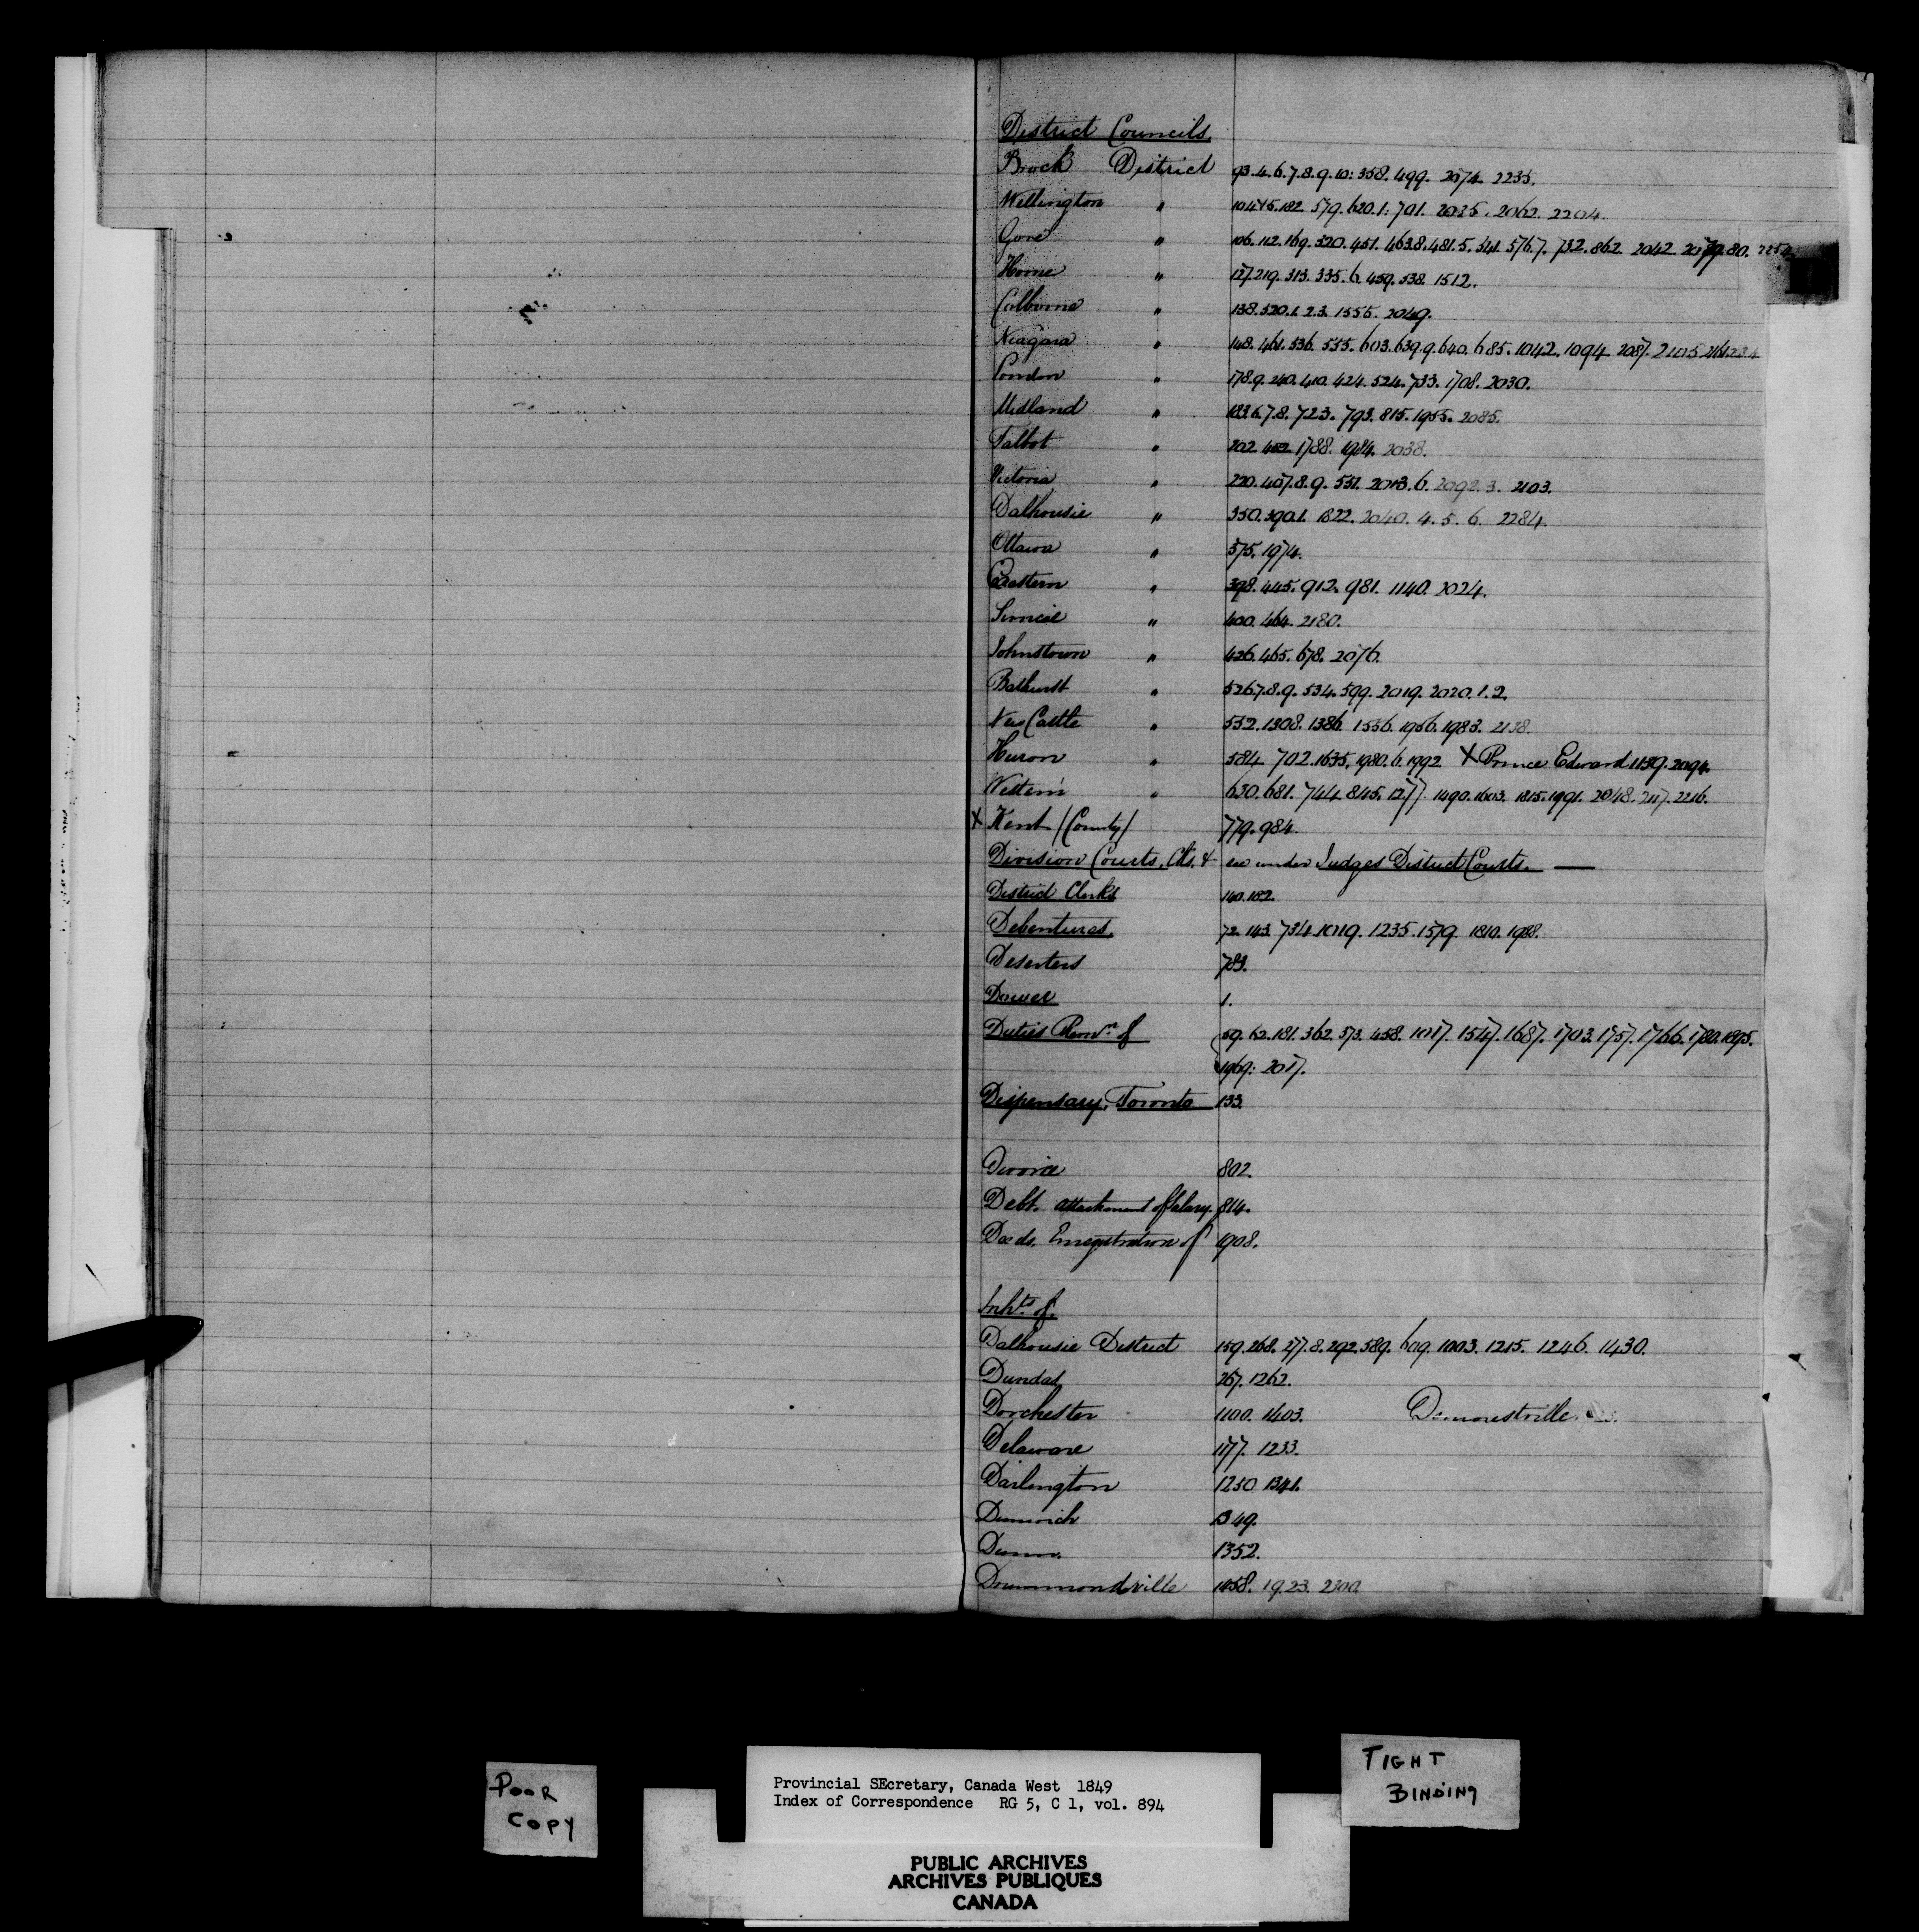 District Councils.
Brock District 93.4.6.7.8.9.10: 358. 499. 2074 2235.
Wellington " 10475.182. 579. 620.1: 701. 2035. 2062. 2204.
Gore " 106. 112. 169. 320. 451. 463.8. 481.5. 541. 576.7. 732. 862. 2042. 2079.80. 2254
Home " 127. 219. 313. 335.6. 459. 538. 1512.
Colborne " 138. 320.1.2.3. 1555. 2049.
Niagara " 148. 461. 536. 555. 603. 639.9. 640. 685. 1042. 1094 2087. 2105
London " 178.9. 240. 410. 424. 524. 733. 1708. 2030.
Midland " 183.6.7.8. 723. 793. 815. 1955. 2085.
Talbot " 202. 1788. 1984. 2038.
Victoria " 220. 407.8.9. 531. 2013.6. 2092.3. 2103.
Dalhousie " 350. 390.1. 1822. 2040. 4. 5. 6. 2284.
Ottawa " 575. 1974.
Eastern " 398. 445. 912. 981. 1140. 2024.
Simcoe " 400. 464. 2180.
Johnstown " 426. 465. 678. 2076.
Bathurst " 526.7.8.9. 534. 599. 2019. 2020.1.2.
New Castle " 552. 1308. 1386. 1556. 1956. 1983. 2138.
Huron " 584 702. 1635. 1980.6. 1992 X Prince Edward 1139. 2094.
Western " 630. 681. 744. 845. 1277. 1490. 1603. 1815. 1991. 2048. 2117. 2216.
X Kent (County) 779. 984.
Division Courts, Clks, &c see under Judges District Courts.
District Clerks 140. 182.
Debentures. 72. 143. 734. 1019. 1235. 1579. 1810. 1988.
Deserters 783.
Dower 1.
Duties Remn. of 59. 62. 181. 362. 373. 458. 1017. 1547. 1687. 1703. 1757. 1766. 1780. 1895.
1969: 2017.
Dispensary, Toronto 133.
Divorce 802.
Debt. attachment of Salary. 814.
Deeds, Enregistration of 1908.
Inhts of.
Dalhousie District 159. 268. 277.8. 292. 589. 609. 1003. 1215. 1246. 1430.
Dundas 267. 1262.
Dorchester 1100. 1403. Demorestville
Delaware 1177. 1233.
Darlington 1250 1341.
Dunwich 1349.
Dunn. 1352.
Drummondville 1458. 1923. 2300.
POOR
COPY
Provincial SEcretary, Canada West 1849
Index of Correspondence RG 5, C 1, vol. 894
TIGHT
BINDING
PUBLIC ARCHIVES
ARCHIVES PUBLIQUES
CANADA